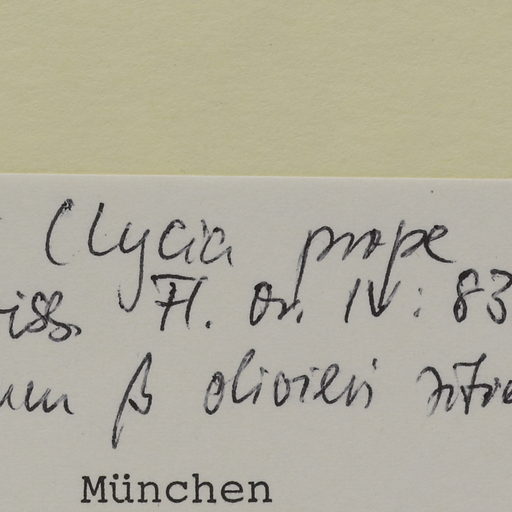 (Lycia prope
iss. Fl. or. IV: 83
β olivieri zitie
München